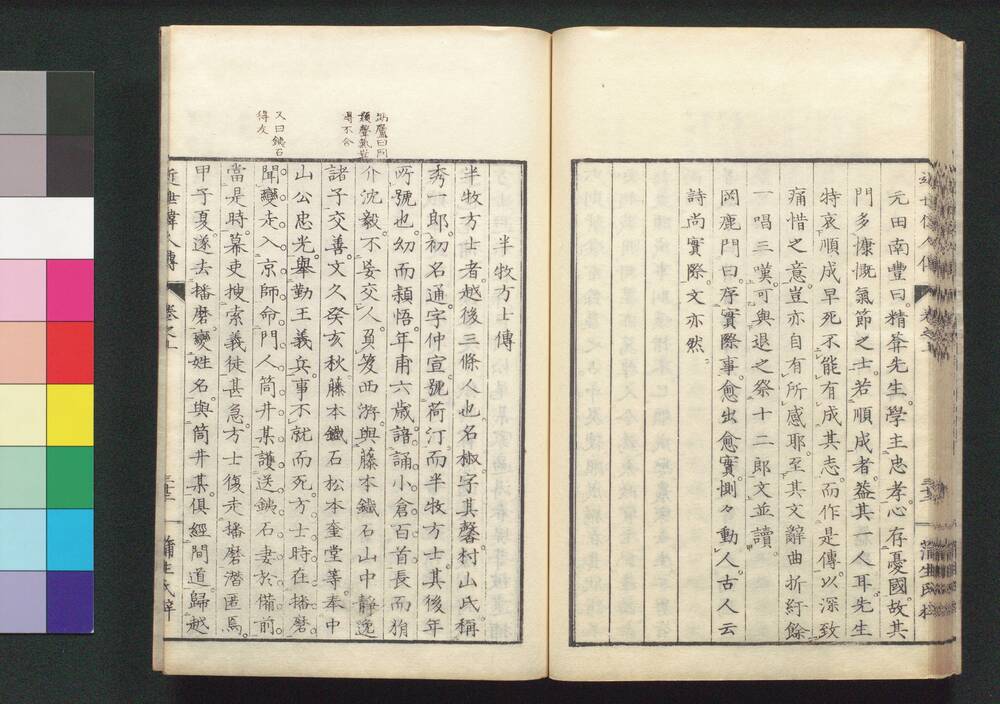 元田南豐曰精峯先生學主忠孝心存憂國故其
門多慷慨氣節之士若順成者益其一人耳先生
特哀順成早死不能有成其志而作是傳以深致
痛惜之意豈亦自有所感耶至其文辭曲折紆餘
一唱三嘆可與退之祭十二郎文並讀
岡鹿門曰序實際事愈出愈實惻々動人古人云
詩尚實際文亦然
半牧方士傳
半牧方士者越後三條人也名椒字其馨村山氏稱
秀郎初名通字仲宣號荷汀而半牧方士其後年
所號也幼而穎悟年甫六歳諳誦小倉百首長而狷
介沈毅不妄交人負笈西游與藤本鐵石山中靜逸
諸子交善文久癸亥秋藤本鐵石松本奎堂等奉中
山公忠光舉勤王義兵事不就而死方士時在播磨
聞變走入京師命門人筒井某護送銕石妻於備前
當是時幕吏搜索義徒甚急方士復走播磨潛匿焉
甲子夏遂去播磨變姓名與筒井某俱經間道歸越
又曰鐵石
得友
近世偉人傳
卷之
蒲生氏梓